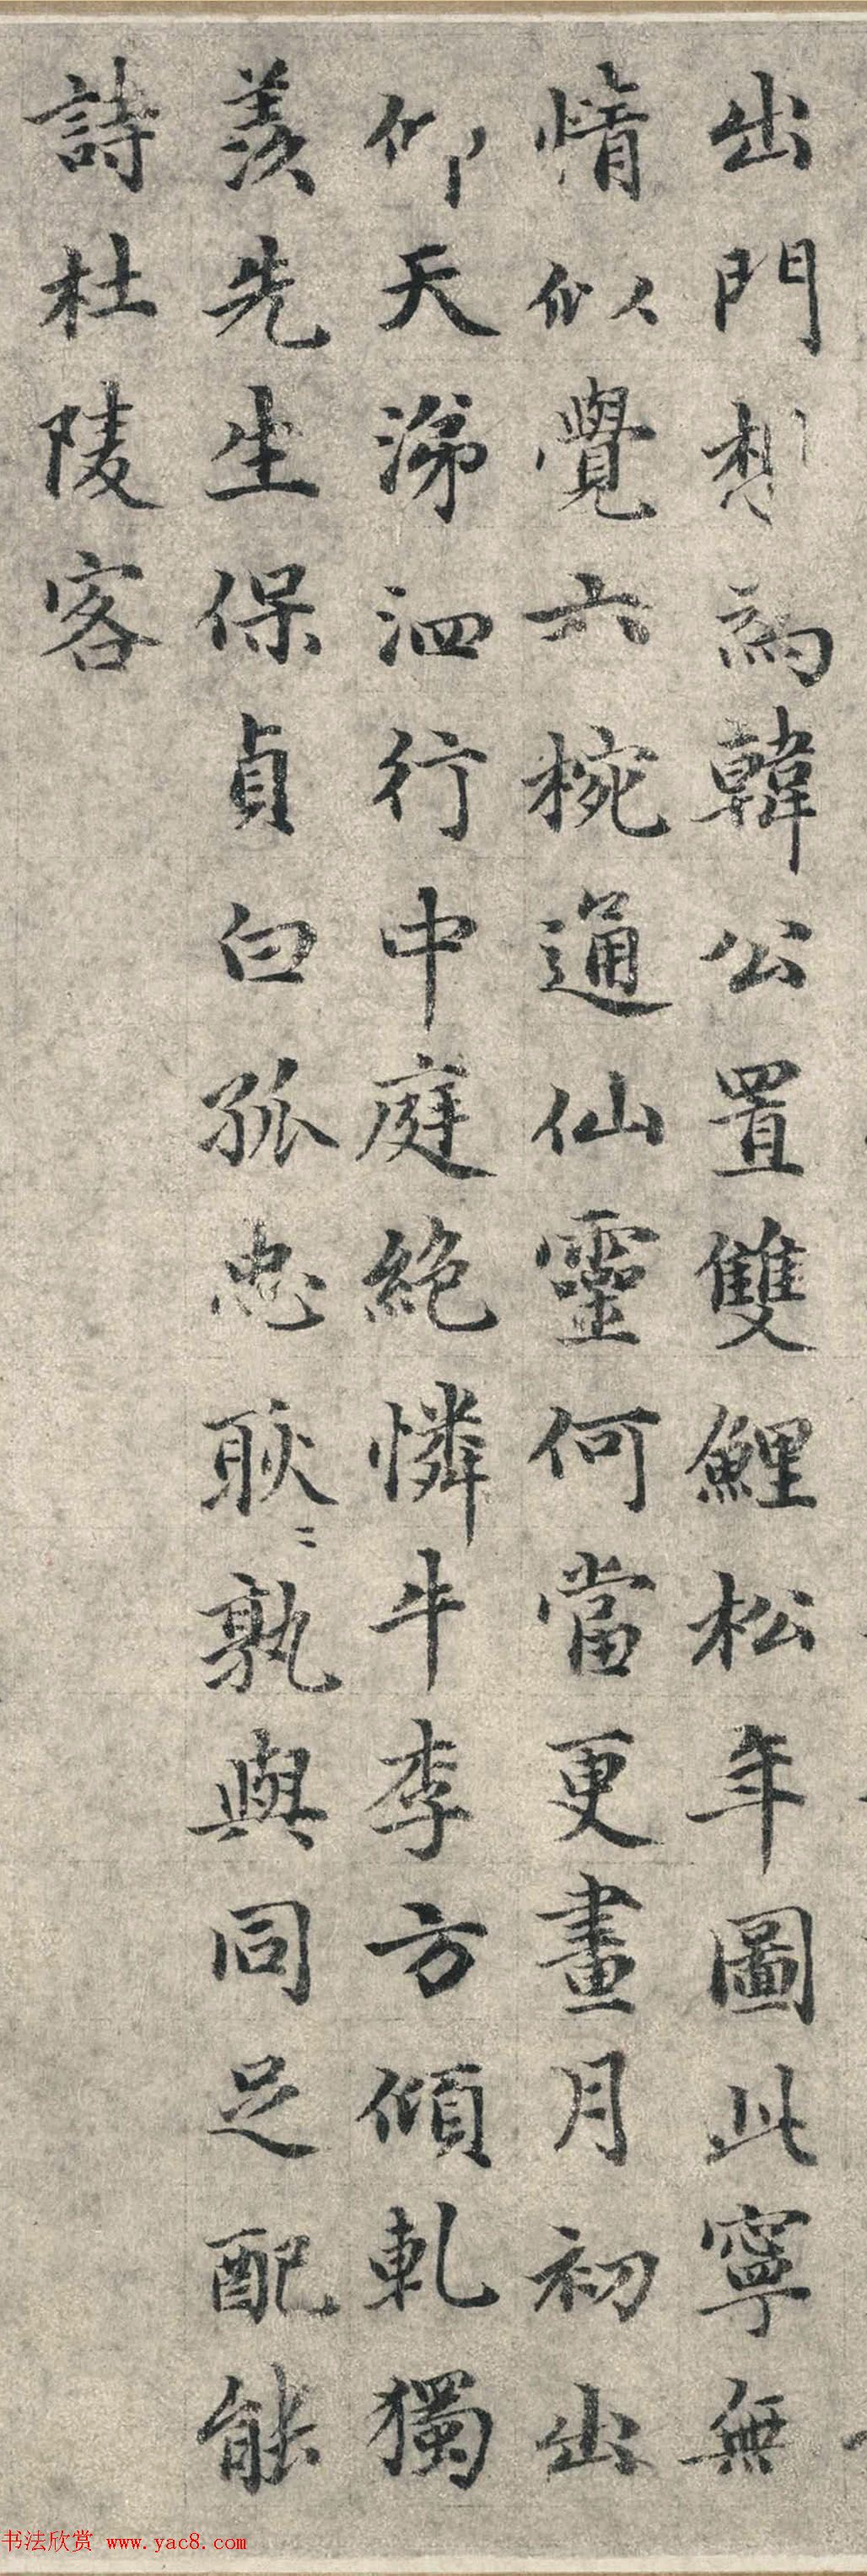 出門想為韓公置雙鯉松年圖此寧無
情似覺六椀通仙靈何當更畫月初出
仰天涕泗行中庭絕憐牛李方傾軋獨
羨先生保貞白孤忠耿〻孰與同足配能
詩杜陵客
书法欣赏 www.yac8.com